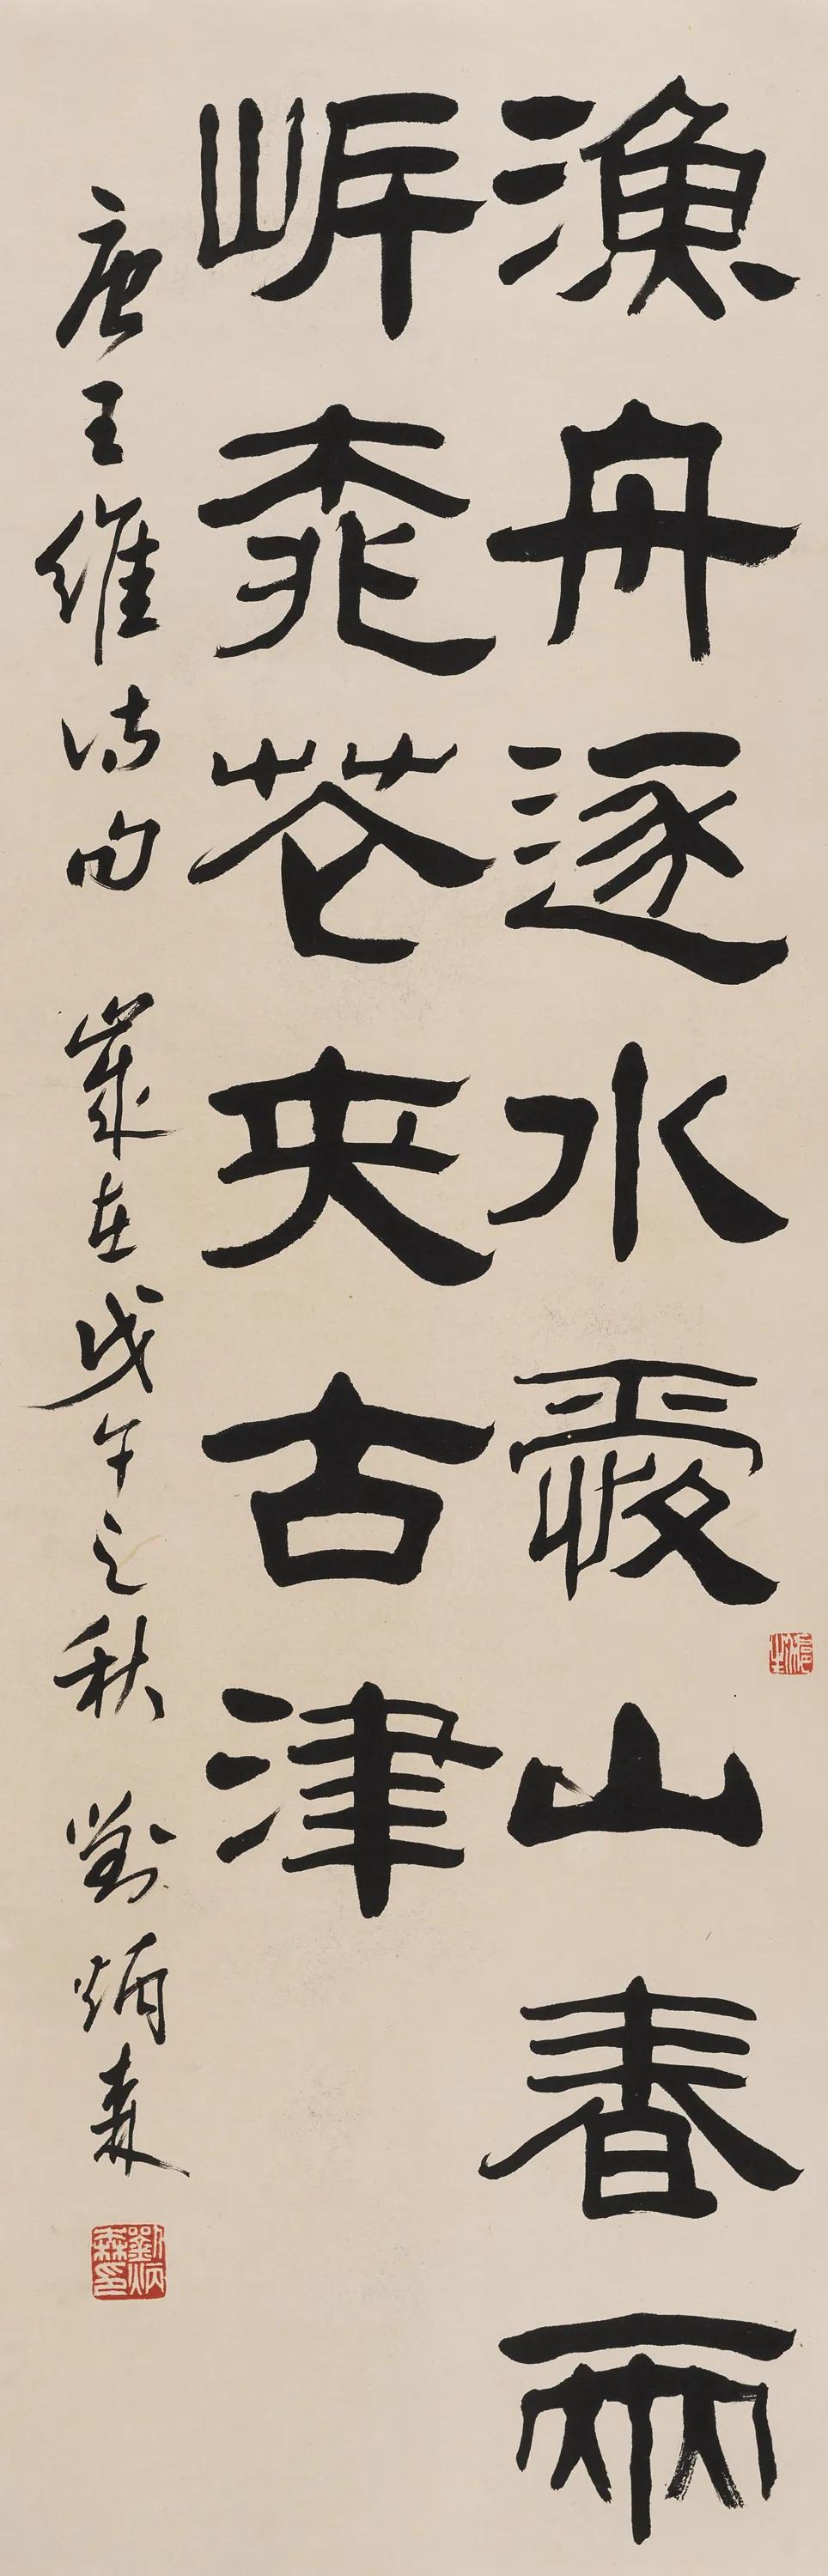 漁舟逐水愛山春兩
岸桃花夾古津
唐王維詩句 歲在戊午之秋 劉炳森
劉炳森印